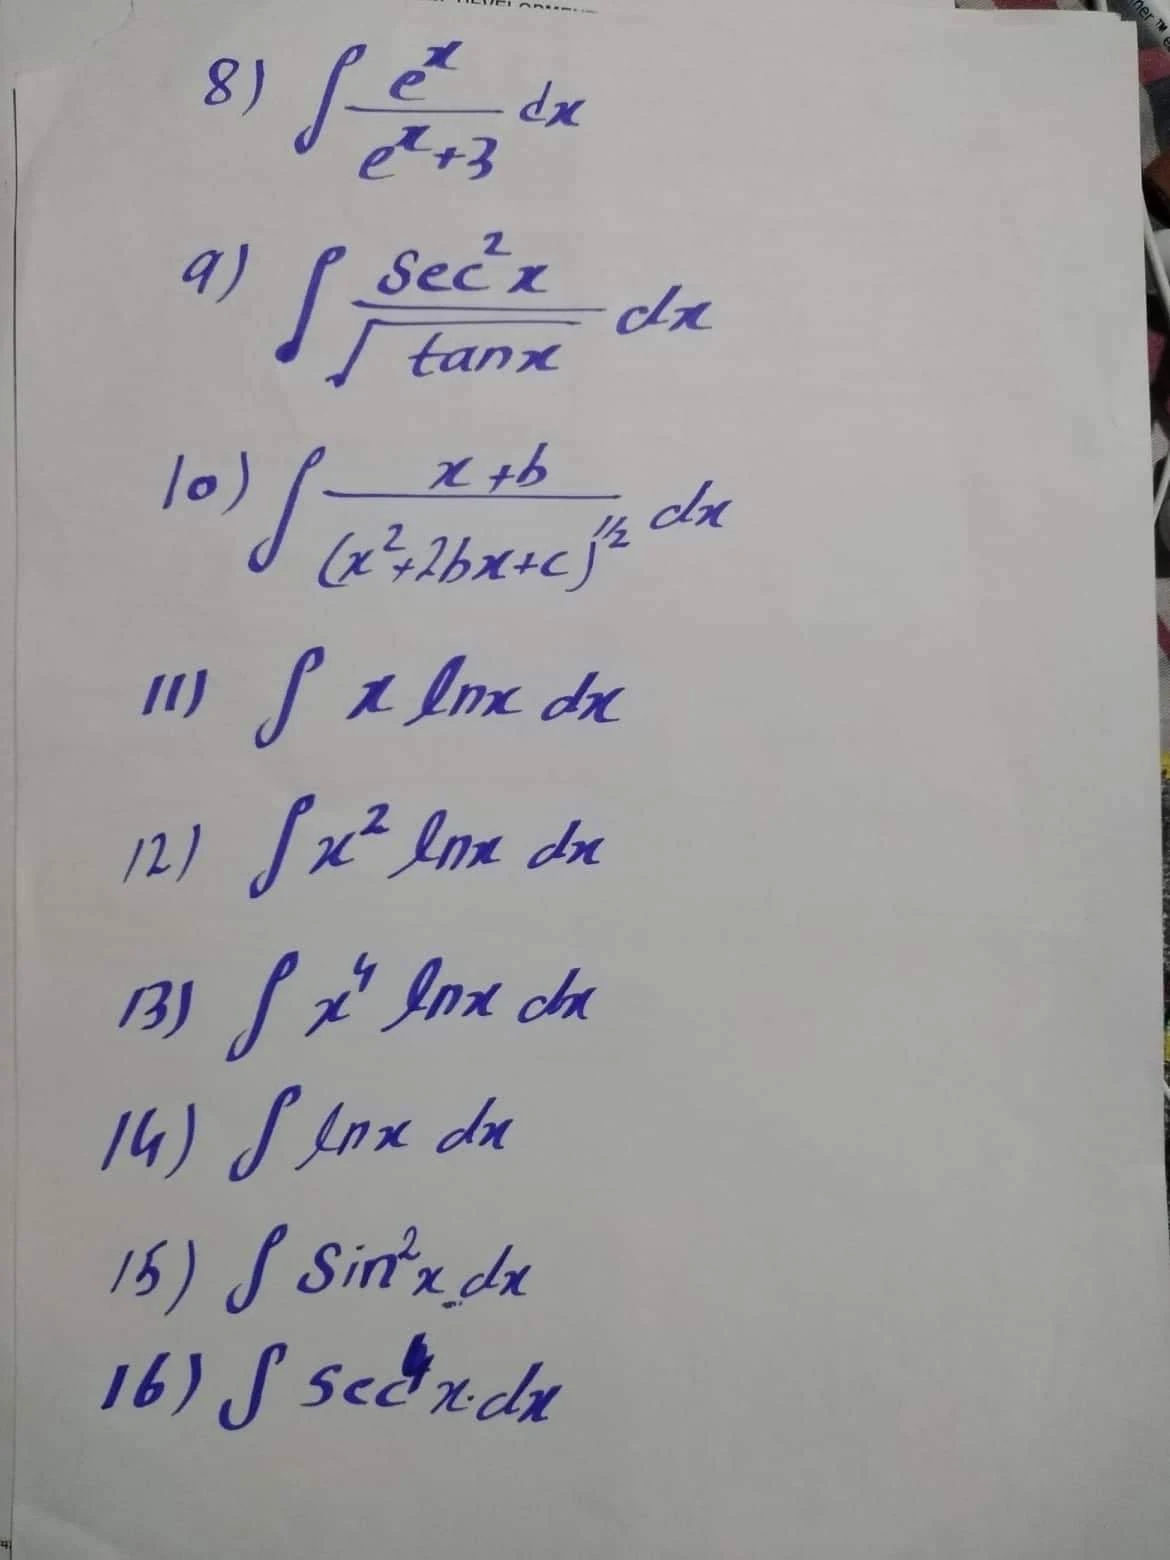 8) ∫ e^x / (e^x+3) dx
9) ∫ Sec²x / √tanx dx
10) ∫ x+b / (x²+2bx+c)^1/2 dx
11) ∫ x lnx dx
12) ∫ x² lnx dx
13) ∫ x⁴ lnx dx
14) ∫ lnx dx
15) ∫ Sin²x dx
16) ∫ sec⁴x.dx